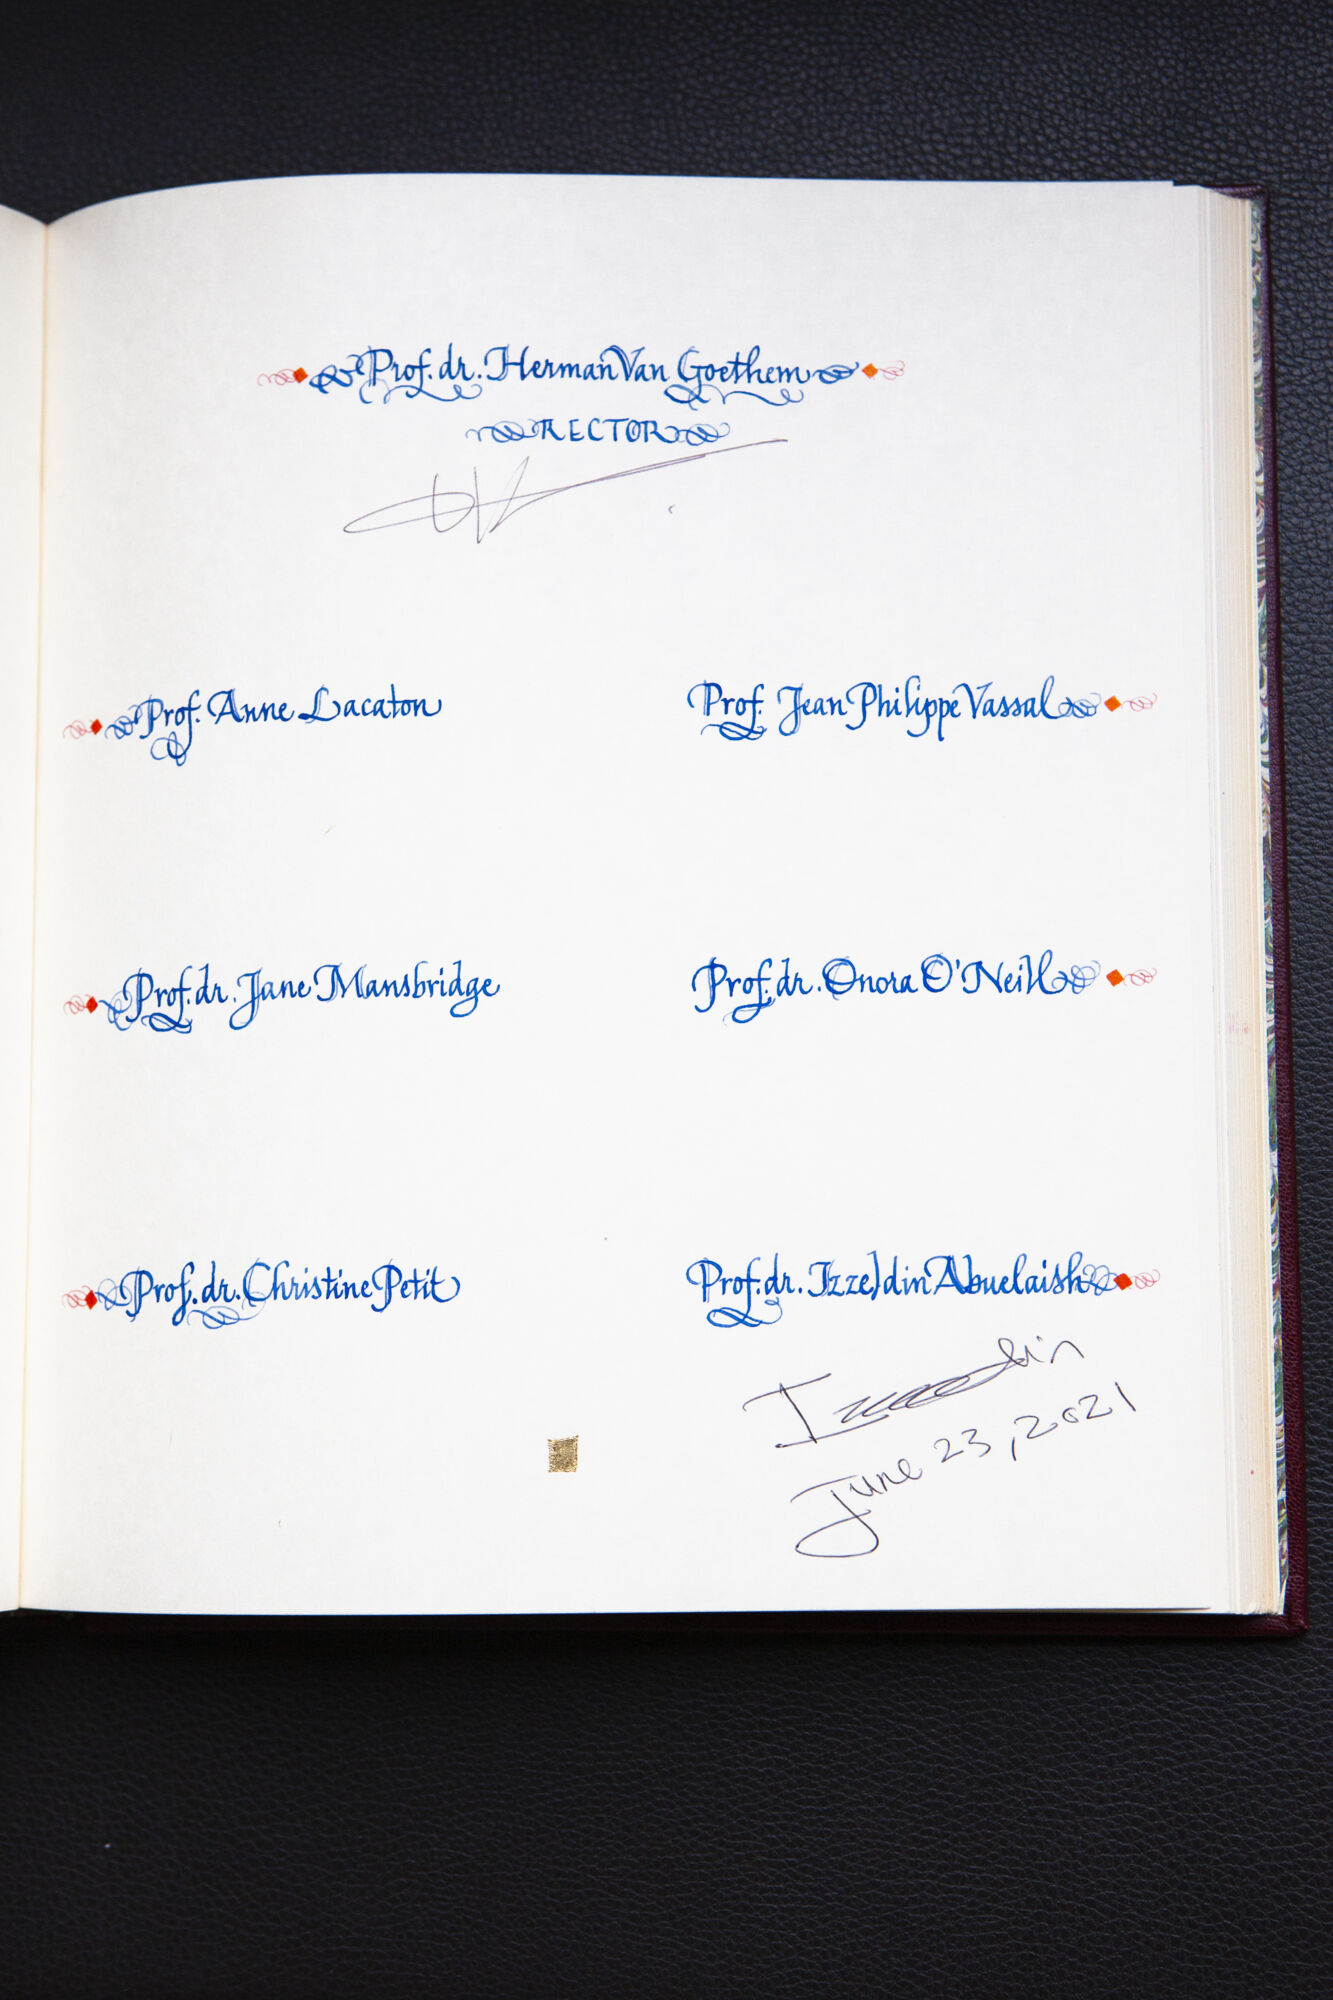 Prof. dr. Herman Van Goethem
RECTOR
Prof. Anne Lacaton
Prof. Jean Philippe Vassal
Prof. dr. Jane Mansbridge
Prof. dr. Onora O'Neill
Prof. dr. Christine Petit
Prof. dr. Izzeldin Abuelaish
June 23, 2021